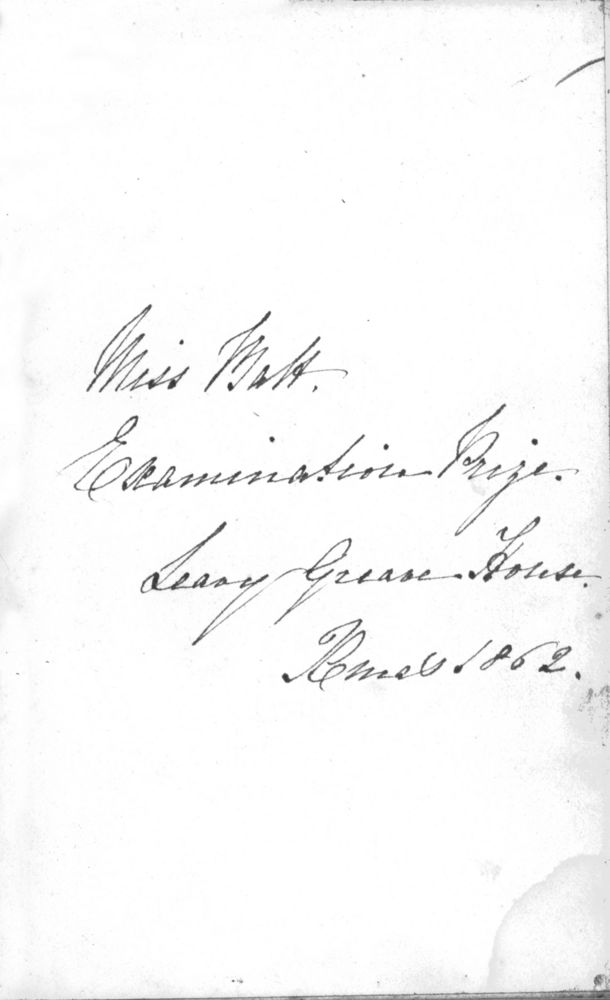 Miss Batt.
Examination Prize.
Leavy Greave House.
Xmas 1862.